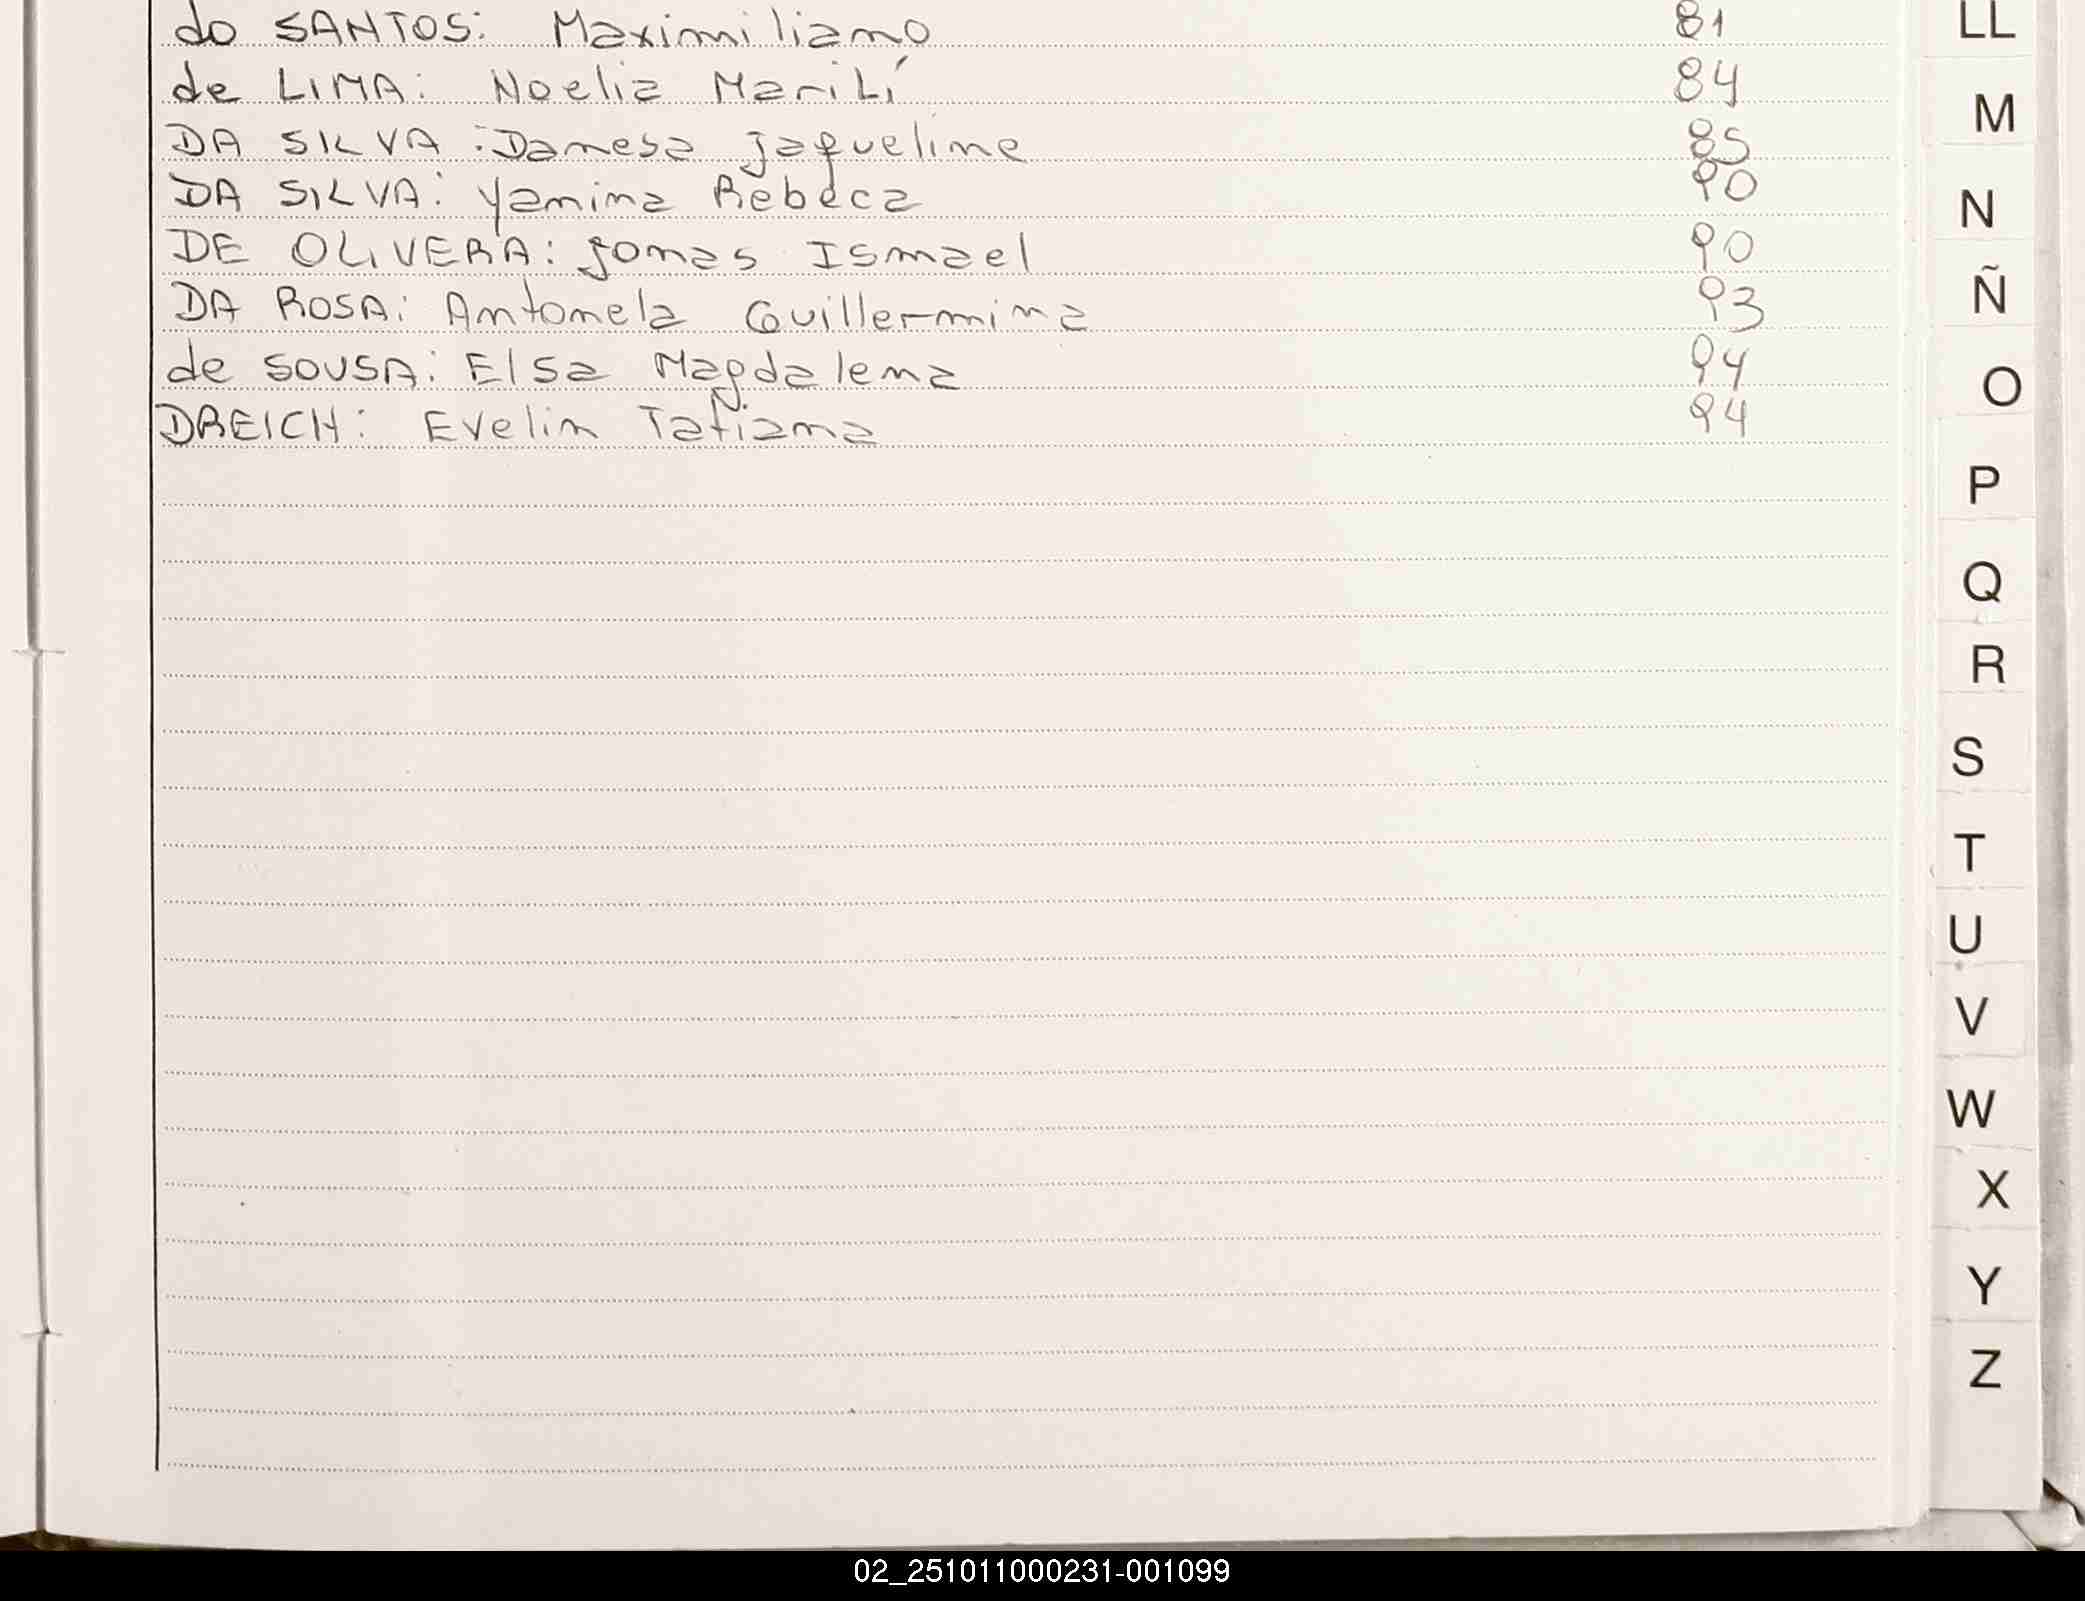 do SANTOS: Maximiliano 81
de LIMA: Noelia MariLí 84
DA SILVA: Danesa Jaqueline 85
DA SILVA: Yanina Rebeca 90
DE OLIVERA: Jonas Ismael 90
DA ROSA: Antonela Guillermina 93
de SOUSA: Elsa Magdalena 94
DREICH: Evelin Tatiana 94
LL
M
N
Ñ
O
P
Q
R
S
T
U
V
W
X
Y
Z
02_251011000231-001099